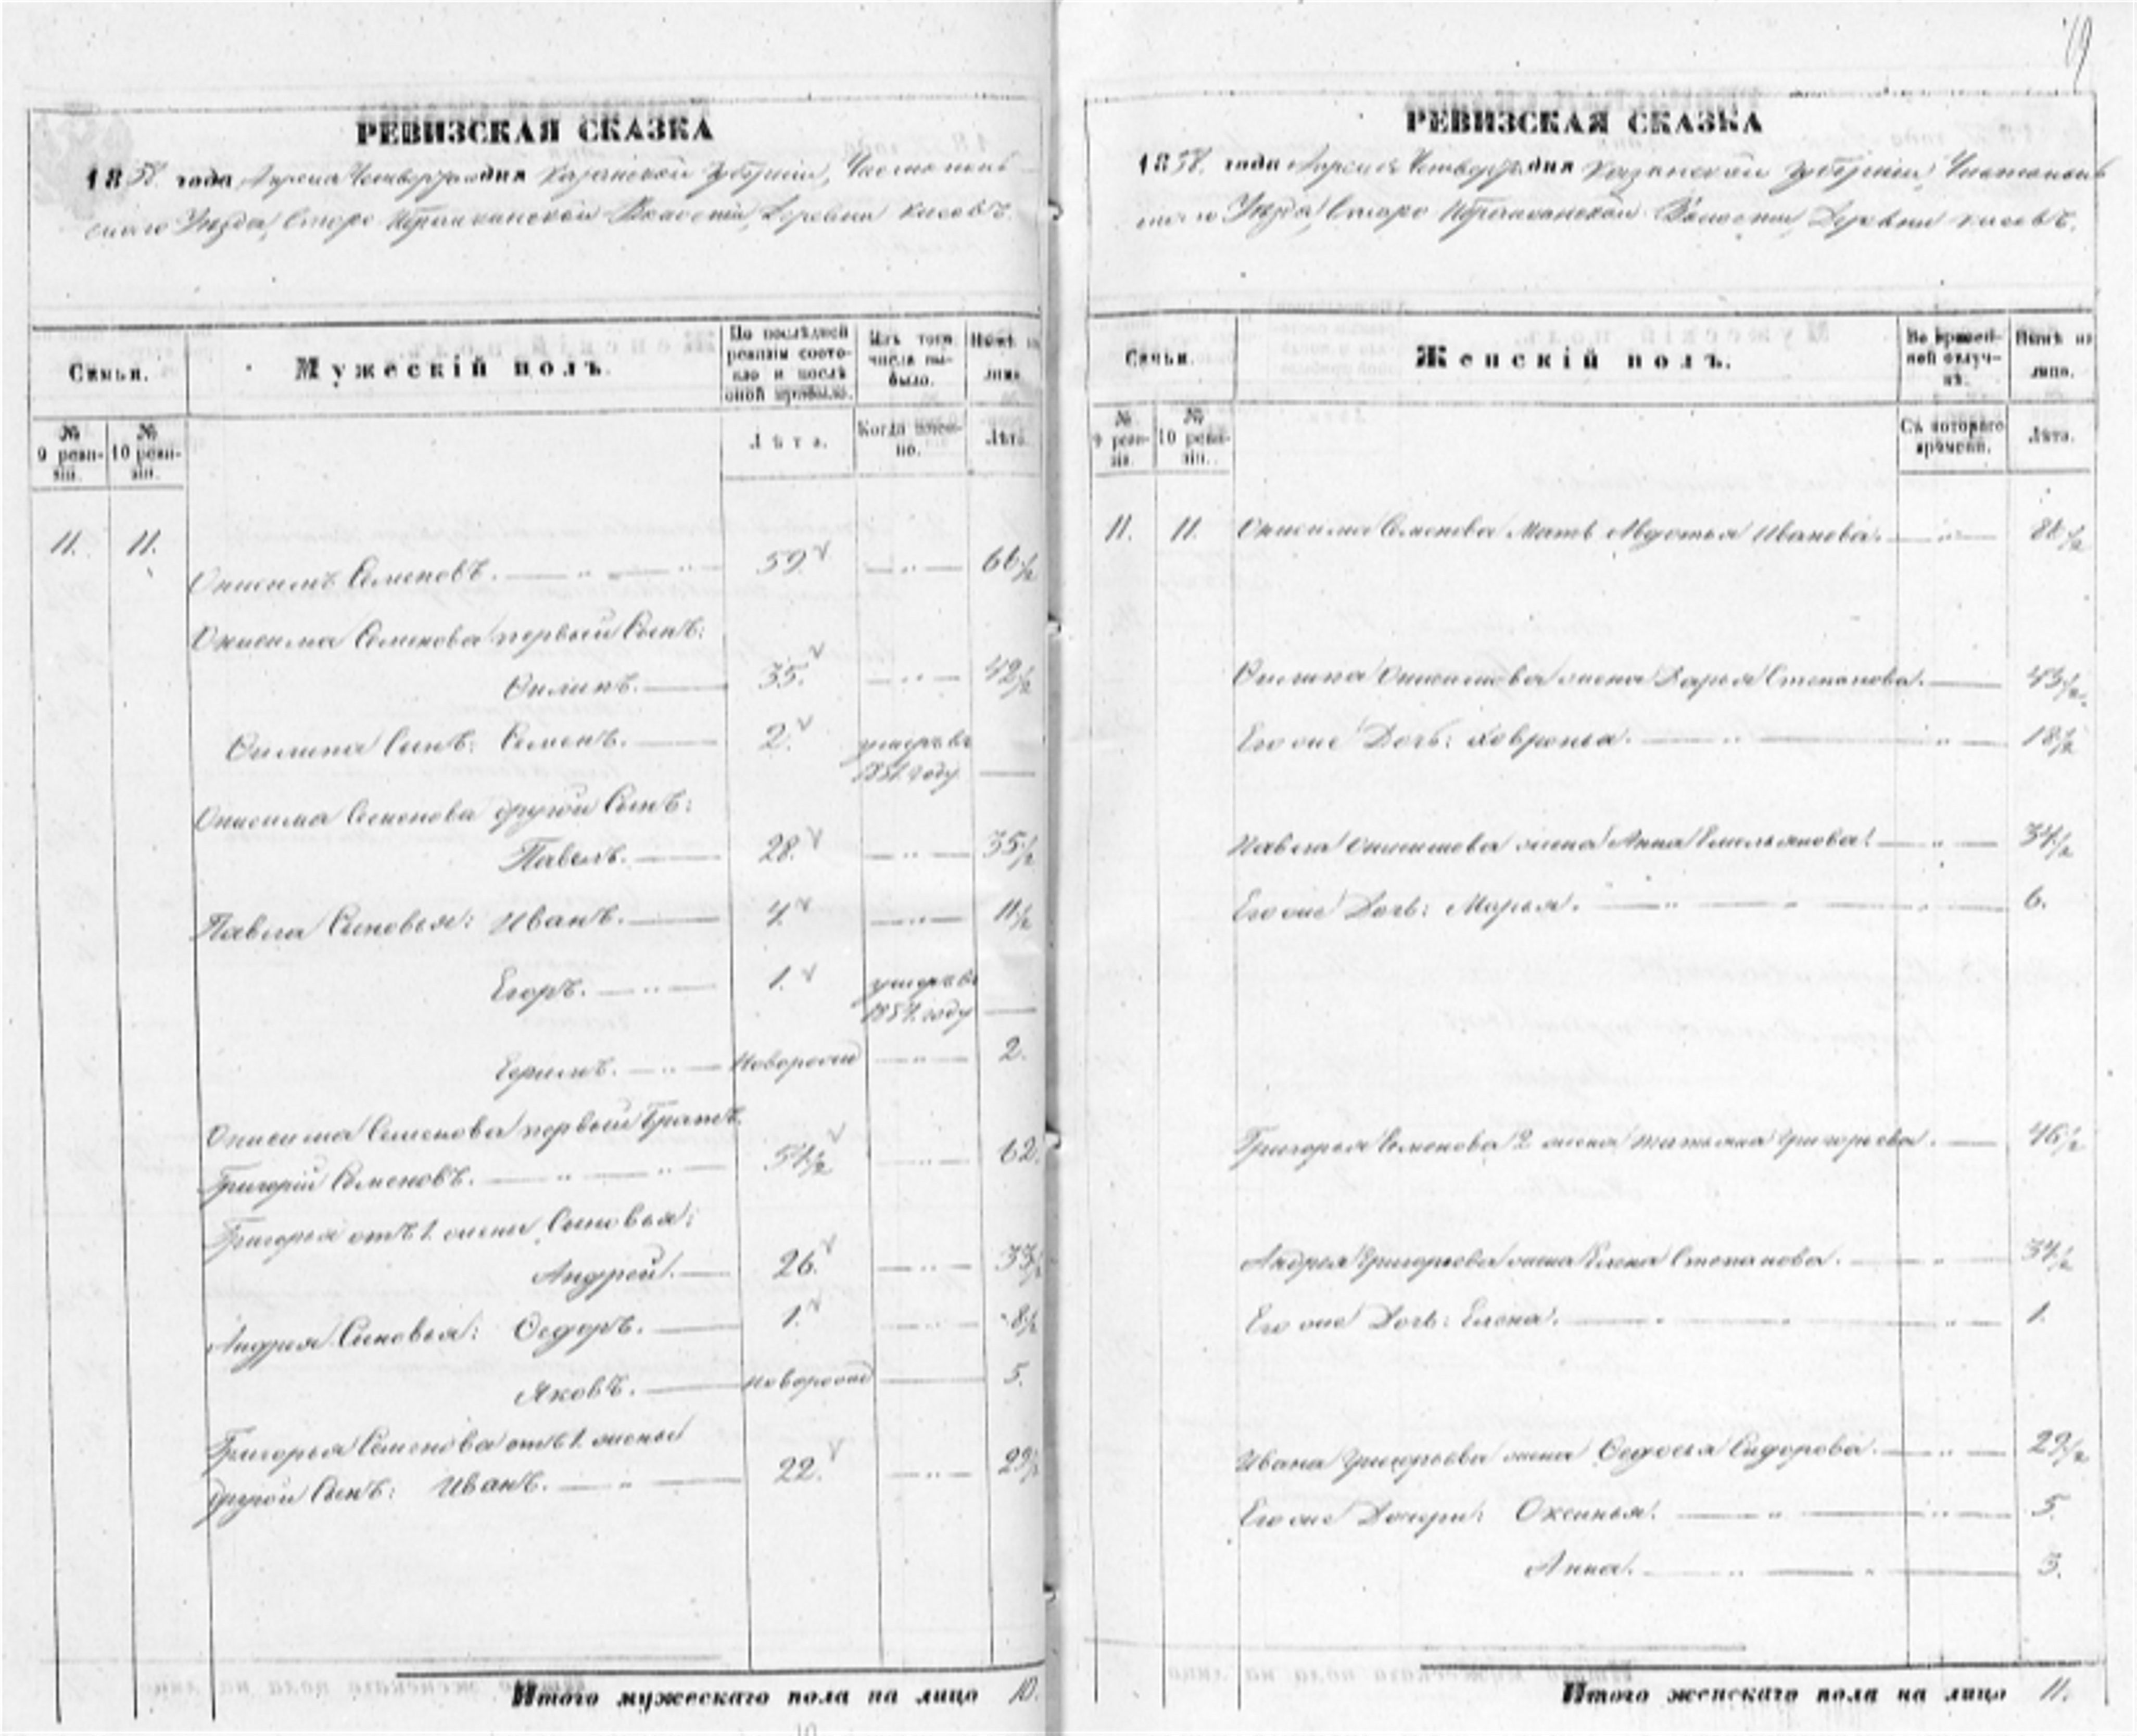 19
РЕВИЗСКАЯ СКАЗКА
1858 года Апреля Четвертого дня Казанской Губернии, Чистополь-
скаго Уѣзда, Старо Ибрайкинской Волости, Деревни Кисовъ.
Семьи.
Мужескій полъ.
По послѣдней ревизіи состо-
яло и послѣ
оной прибыло.
Изъ того
числа вы-
было.
Нынѣ на
лице.
№
9 реви-
зіи.
№
10 реви-
зіи.
Лѣта.
Когда имен-
но.
Лѣта.
11. 11.
Онисимъ Семеновъ. 59. 66 1/2
Онисима Семенова первый Сынъ:
Филипъ. 35. 42 1/2
Филипа Сынъ: Семенъ. 2. умеръ въ
1851 году
Онисима Семенова другой Сынъ:
Павелъ. 28. 35 1/2
Павла Сыновья: Иванъ. 4. 11 1/2
Егоръ. 1. умеръ въ
1854 году
новорожд 2.
Онисима Семенова первый Братъ
Григорій Семеновъ. 54 1/2 62.
Григорья отъ 1. жены Сыновья:
Андрей. 26. 33 1/2
Андрея Сыновья: Федоръ. 1. 8 1/2
Яковъ. новорожд 5.
Григорья Семенова отъ 1. жены
другой Сынъ: Иванъ. 22. 29 1/2
Итого мужескаго пола на лицо 10.
РЕВИЗСКАЯ СКАЗКА
1858. года Апреля Четвертого дня Казанской Губернии, Чистополь
скаго Уѣзда, Старо Ибрайкинской Волости, Деревни Кисовъ.
Семьи.
Женскій полъ.
Во времен-
ной отлуч-
кѣ.
Нынѣ на
лицо.
№
9 реви-
зіи.
№
10 реви-
зіи.
Съ котораго
времени.
Лѣта.
11. 11. Онисима Семенова Мать Авдотья Иванова. 88 1/2
Филипа Онисимова жена Дарья Степанова. 43 1/2
Его же Дочь: Хавронья. 18 1/2
Павла Онисимова жена Анна Емельянова. 34 1/2
Его же Дочь: Марья. 6.
Григорья Семенова 2 жена Татьяна Григорьева. 46 1/2
Андрея Григорьева жена Елена Степанова. 34 1/2
Его же Дочь: Елена. 1.
Ивана Григорьева жена Федосья Сидорова. 29 1/2
Его же Дочери: Оксинья. 5.
Анна. 3.
Итого женскаго пола на лицо 11.